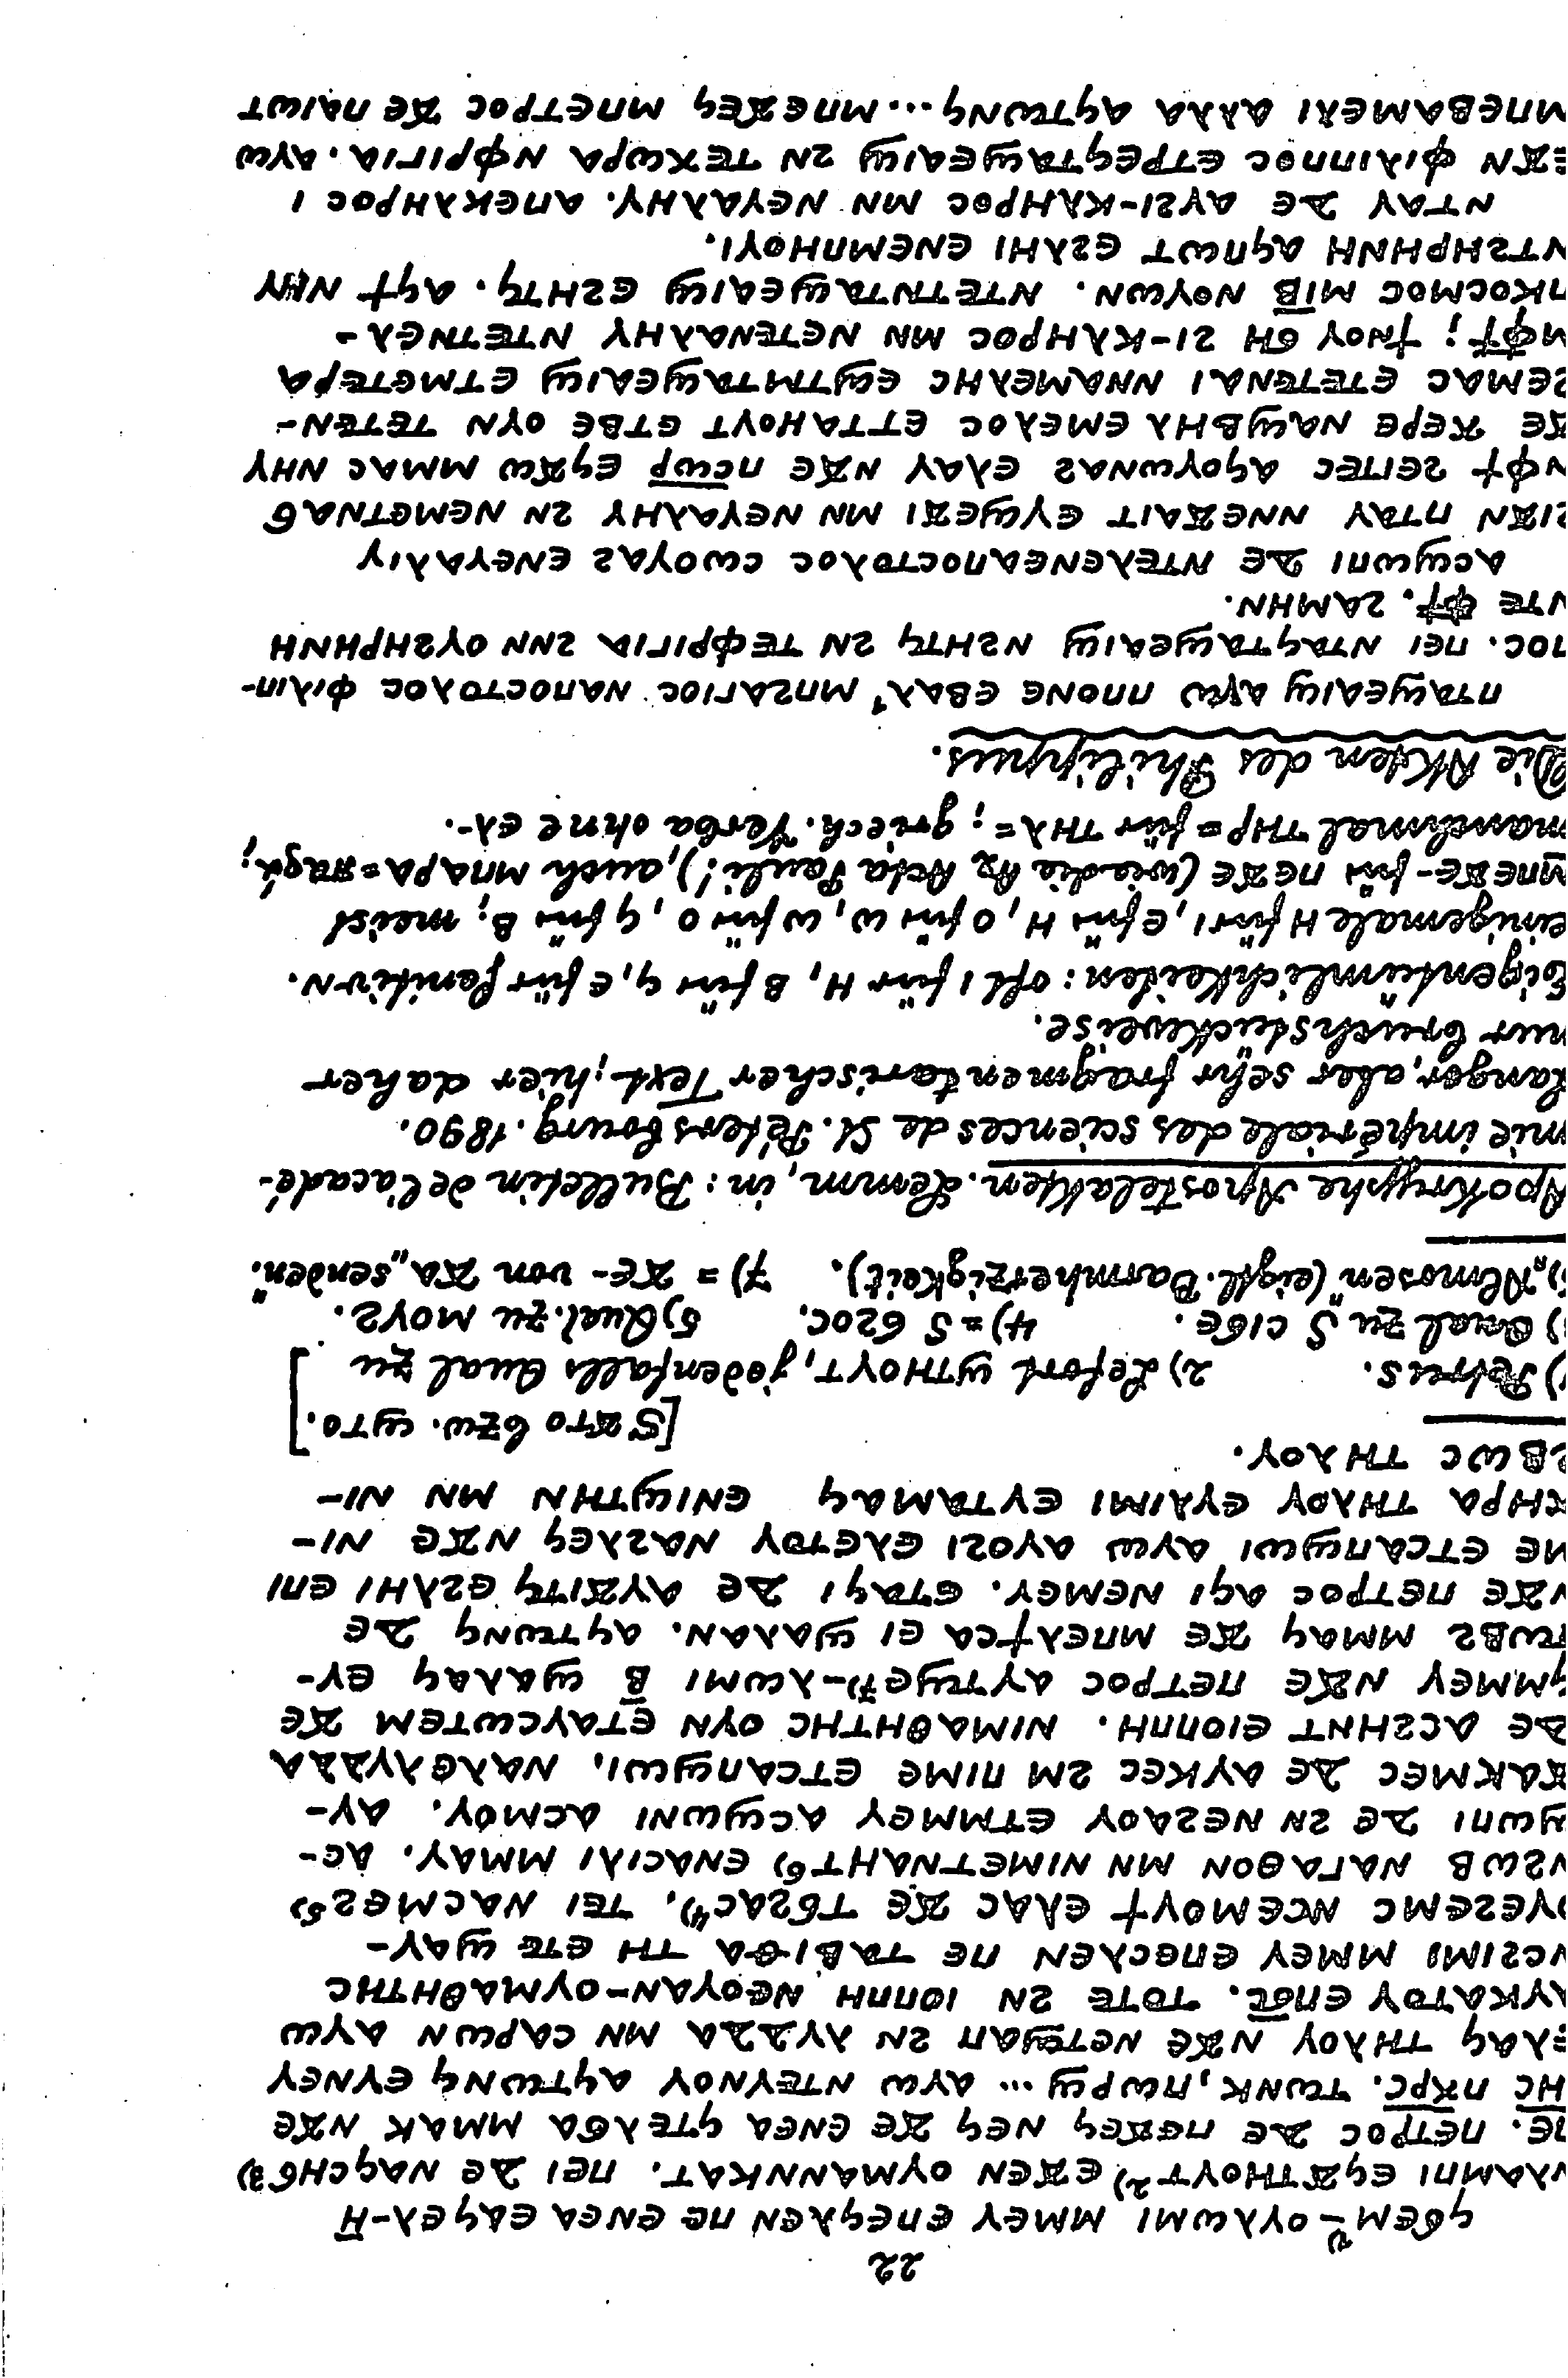 22
ϥϭⲉⲙ-ⲟⲩⲗⲱⲙⲓ ⲙⲙⲉⲩ ⲉⲡⲉϥⲗⲉⲛ ⲡⲉ ⲉⲛⲉⲁ ⲉⲁϥⲉⲗ-ⲏ̅
ⲗⲁⲙⲡⲓ ⲉϥϫⲧⲏⲟⲩⲧ²) ⲉϫⲉⲛ ⲟⲩⲙⲁⲛⲛⲕⲁⲧ. ⲡⲉⲓ ⲇⲉ ⲛⲁϥⲥⲏϭ³)
ⲡⲉ. ⲡⲉⲧⲣⲟⲥ ⲇⲉ ⲡⲉϫⲉϥ ⲛⲉϥ ϫⲉ ⲉⲛⲉⲁ ϥⲧⲉⲗϭⲁ ⲙⲙⲁⲕ ⲛϫⲉ
ⲓⲏⲥ ⲡⲭⲣⲥ. ⲧⲱⲛⲕ, ⲡⲱⲣϣ ... ⲁⲩⲱ ⲛⲧⲉⲩⲛⲟⲩ ⲁϥⲧⲱⲛϥ ⲉⲩⲛⲉⲩ
ⲉⲗⲁϥ ⲧⲏⲗⲟⲩ ⲛϫⲉ ⲛⲉⲧϣⲁⲡ ϩⲛ ⲗⲩⲇⲇⲁ ⲙⲛ ⲥⲁⲣⲱⲛ ⲁⲩⲱ
ⲁⲩⲕⲁⲧⲟⲩ ⲉⲡϭⲥ. ⲧⲟⲧⲉ ϩⲛ ⲓⲟⲡⲡⲏ ⲛⲉⲟⲩⲁⲛ-ⲟⲩⲙⲁⲑⲏⲧⲏⲥ
ⲛⲥϩⲓⲙⲓ ⲙⲙⲉⲩ ⲉⲡⲉⲥⲗⲉⲛ ⲡⲉ ⲧⲁⲃⲓⲑⲁ ⲧⲏ ⲉⲧⲉ ϣⲁⲩ-
ⲟⲩⲉϩⲉⲙⲥ ⲛⲥⲉⲙⲟⲩϯ ⲉⲗⲁⲥ ϫⲉ ⲧϭϩⲁⲥ⁴). ⲧⲉⲓ ⲛⲁⲥⲙⲉϩ⁵)
ⲛϩⲱⲃ ⲛⲁⲅⲁⲑⲟⲛ ⲙⲛ ⲛⲓⲙⲉⲧⲛⲁⲏⲧ⁶) ⲉⲛⲁⲥⲓⲗⲓ ⲙⲙⲁⲩ. ⲁⲥ-
ϣⲱⲡⲓ ⲇⲉ ϩⲛ ⲛⲉϩⲁⲟⲩ ⲉⲧⲙⲙⲉⲩ ⲁⲥϣⲱⲛⲓ ⲁⲥⲙⲟⲩ. ⲁⲩ-
ϫⲁⲕⲙⲉⲥ ⲇⲉ ⲁⲩⲕⲉⲥ ϩⲙ ⲡⲓⲙⲉ ⲉⲧⲥⲁⲡϣⲱⲓ. ⲛⲁⲗⲉⲗⲩⲇⲇⲁ
ⲇⲉ ⲁⲥϩⲏⲛⲧ ⲉⲓⲟⲡⲡⲏ. ⲛⲓⲙⲁⲑⲏⲧⲏⲥ ⲟⲩⲛ ⲉⲧⲁⲩⲥⲱⲧⲉⲙ ϫⲉ
ϥⲙⲙⲉⲩ ⲛϫⲉ ⲡⲉⲧⲣⲟⲥ ⲁⲩⲧϣⲉ⁷)-ⲗⲱⲙⲓ ⲃ̅ ϣⲁⲗⲁϥ ⲉⲩ-
ⲧⲱⲃϩ ⲙⲙⲁϥ ϫⲉ ⲙⲡⲉⲗϯⲥⲁ ⲉⲓ ϣⲁⲗⲁⲛ. ⲁϥⲧⲱⲛϥ ⲇⲉ
ⲛϫⲉ ⲡⲉⲧⲣⲟⲥ ⲁϥⲓ ⲛⲉⲙⲉⲩ. ⲉⲧⲁϥⲓ ⲇⲉ ⲁⲩϫⲓⲧϥ ⲉϩⲗⲏⲓ ⲉⲡⲓ
ⲙⲉ ⲉⲧⲥⲁⲡϣⲱⲓ ⲁⲩⲱ ⲁⲩⲟϩⲓ ⲉⲗⲉⲧⲟⲩ ⲛⲁϩⲗⲉϥ ⲛϫⲉ ⲛⲓ-
ⲭⲏⲣⲁ ⲧⲏⲗⲟⲩ ⲉⲩⲗⲓⲙⲓ ⲉⲩⲧⲁⲙⲁϥ ⲉⲛⲓϣⲧⲏⲛ ⲙⲛ ⲛⲓ-
ϩⲃⲱⲥ ⲧⲏⲗⲟⲩ.
[S ϫⲧⲟ bzw. ϣⲧⲟ.]
1) Petrus. 2) Lefort ϣⲧⲏⲟⲩⲧ, jedenfalls Qual zu
3) Qual zu S ⲥⲓϭⲉ. 4) = S ϭϩⲟⲥ. 5) Qual. zu ⲙⲟⲩϩ.
6) „Almosen“ (eigtl. Barmherzigkeit). 7) = ϫⲉ- von ϫⲁ „senden“.
Apokryphe Apostelakten. Lemm, in: Bulletin de l'acadé-
mie impériale des sciences de St. Pétersbourg. 1890.
Langer, aber sehr fragmentarischer Text; hier daher
nur bruchstückweise.
Eigentümlichkeiten: oft ⲓ für ⲏ, ⲃ für ϥ, ⲉ für ⲛ
einigemale ⲏ für ⲓ, ⲉ für ⲏ, ⲟ für ⲱ, ⲱ für ⲟ, ϥ für ⲃ; meist
ⲙⲡⲉϫⲉ- für ⲡⲉϫⲉ (wie die Acta Pauli!), auch ⲙⲡⲁⲣⲁ = παρά;
manchmal ⲧⲏⲣ= für ⲧⲏⲗ=; griech. Verba ohne ⲉⲗ-.
Die Akten des Philippus.
ⲡⲧⲁϣⲉⲁⲓϣ ⲁⲩⲱ ⲡⲡⲟⲛⲉ ⲉⲃⲁⲗ ⲙⲡϩⲁⲅⲓⲟⲥ ⲛⲁⲡⲟⲥⲧⲟⲗⲟⲥ ⲫⲓⲗⲓⲡ-
ⲡⲟⲥ. ⲡⲉⲓ ⲛⲧⲁϥⲧⲁϣⲉⲁⲓϣ ⲛϩⲏⲧϥ ϩⲛ ⲧⲉⲫⲣⲓⲅⲓⲁ ϩⲛⲛ ⲟⲩϩⲣⲏⲛⲏ
ⲛⲧⲉ ⲫϯ. ϩⲁⲙⲏⲛ.
ⲁⲥϣⲱⲡⲓ ⲇⲉ ⲛⲧⲉⲗⲉⲛⲉⲁⲡⲟⲥⲧⲟⲗⲟⲥ ⲥⲱⲟⲩⲁϩ ⲉⲛⲉⲩⲁⲗⲓⲩ
ϩⲓϫⲛ ⲡⲧⲁⲩ ⲛⲛⲉϫⲁⲓⲧ ⲉⲩϣⲉϫⲓ ⲙⲛ ⲛⲉⲩⲁⲗⲏⲩ ϩⲛ ⲛⲉⲙⲉⲧⲛⲁϭ
ⲛⲫϯ ϩⲉⲓⲡⲉⲥ ⲁϥⲟⲩⲱⲛⲁϩ ⲉⲗⲁⲩ ⲛϫⲉ ⲡⲥⲱⲣ ⲉϥϫⲱ ⲙⲙⲁⲥ ⲛⲏⲩ
ϫⲉ ⲭⲉⲣⲉ ⲛⲁϣⲃⲏⲗ ⲉⲙⲉⲗⲟⲥ ⲉⲧⲧⲁⲏⲟⲩⲧ ⲉⲧⲃⲉ ⲟⲩⲛ ⲧⲉⲧⲉⲛ-
ϩⲉⲙⲁⲥ ⲉⲧⲉⲧⲉⲛⲁⲓ ⲛⲛⲁⲙⲉⲗⲏⲥ ⲉϣⲧⲙⲧⲁϣⲉⲁⲓϣ ⲉⲧⲙⲉⲧⲉⲣⲁ
ⲙⲫϯ; ϯⲛⲟⲩ ϭⲏ ϩⲓ-ⲕⲗⲏⲣⲟⲥ ⲙⲛ ⲛⲉⲧⲉⲛⲁⲗⲏⲩ ⲛⲧⲉⲧⲛⲉⲗ-
ⲡⲕⲟⲥⲙⲟⲥ ⲙⲓⲃ̅ ⲛⲟⲩⲱⲛ. ⲛⲧⲉⲧⲛⲧⲁϣⲉⲁⲓϣ ⲉϩⲏⲧϥ. ⲁϥϯ ⲛⲏⲩ
ⲛⲧϩⲏⲣⲏⲛⲏ ⲁϥⲡⲱⲧ ⲉϩⲗⲏⲓ ⲉⲛⲉⲙⲡⲏⲟⲩⲓ.
ⲛⲧⲁⲩ ⲇⲉ ⲁⲩϩⲓ-ⲕⲗⲏⲣⲟⲥ ⲙⲛ ⲛⲉⲩⲁⲗⲏⲩ. ⲁⲡⲉⲕⲗⲏⲣⲟⲥ ⲓ
ⲉϫⲛ ⲫⲓⲗⲓⲡⲡⲟⲥ ⲉⲧⲣⲉϥⲧⲁϣⲉⲁⲓϣ ϩⲛ ⲧⲉⲭⲱⲣⲁ ⲛⲫⲣⲓⲅⲓⲁ. ⲁⲩⲱ
ⲙⲡⲉⲃⲁⲙⲉⲗⲓ ⲁⲗⲗⲁ ⲁϥⲧⲱⲛϥ ... ⲙⲡⲉϫⲉϥ ⲙⲡⲉⲧⲣⲟⲥ ϫⲉ ⲡⲁⲓⲱⲧ